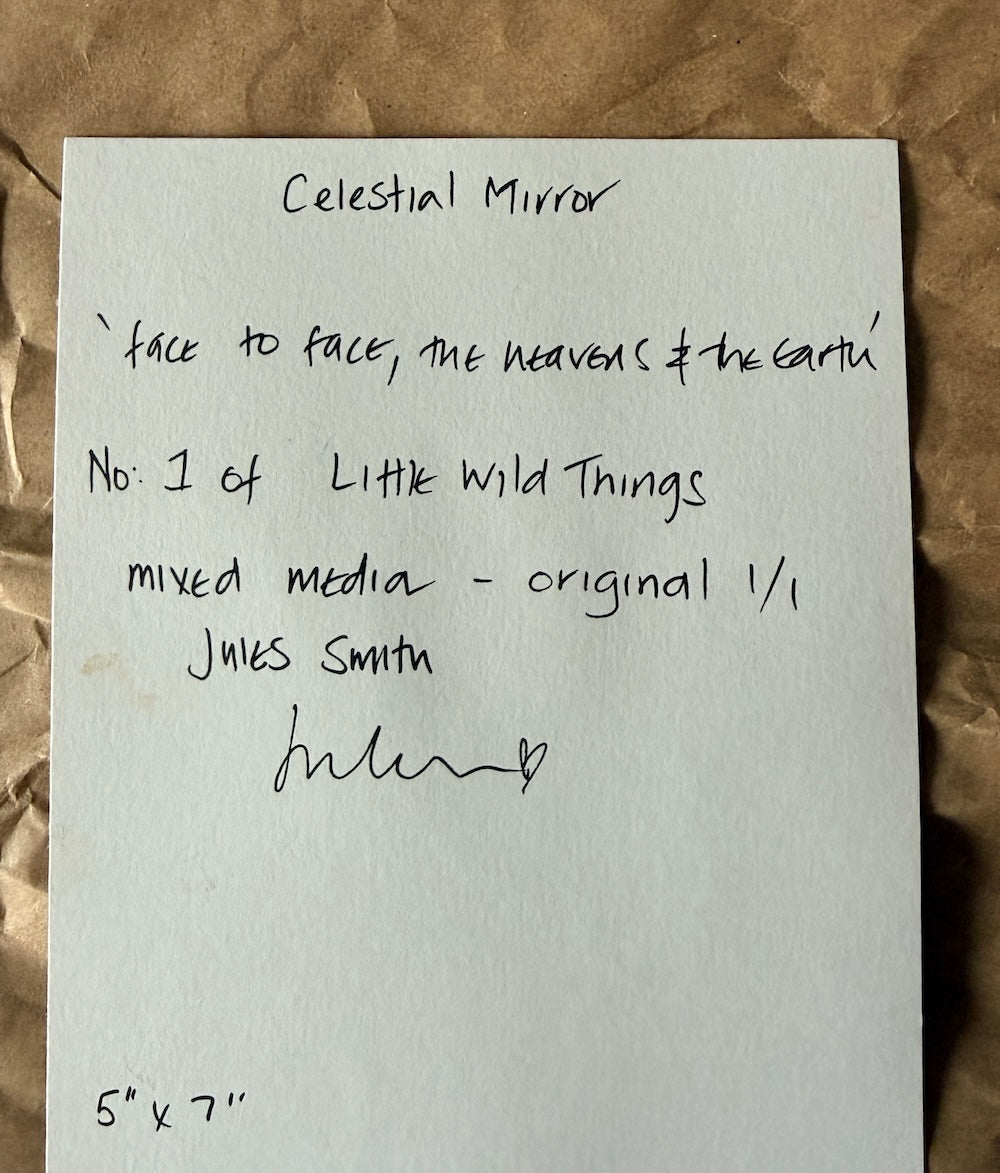 Celestial Mirror
'face to face, the heavens & the Earth'
No: 1 of Little Wild Things
mixed media - original 1/1
Jules Smith
Jules
5" x 7"